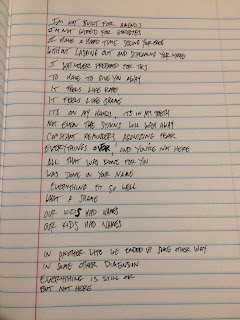 I'M NOT BUILT FOR
I'M NOT WIRED FOR GOODBYES
I HAVE A HARD TIME SEEING YOUR FACE
WITHOUT LASHING OUT AND SCREAMING YOUR NAME
I WAS NEVER PREPARED FOR THIS
TO HAVE TO GIVE YOU AWAY
IT FEELS LIKE
IT FEELS LIKE
IT'S ON MY HANDS, IT'S IN MY TEETH
NOT EVEN THE WILL WASH AWAY
CONSTANT REMINDERS AGONIZING FEAR
EVERYTHING'S OVER AND YOU'RE NOT HERE
ALL THAT WAS DONE FOR YOU
WAS DONE IN YOUR NAME
EVERYTHING FIT SO WELL
WHAT A SHAME
OUR KIDS HAD NAMES
OUR KIDS HAD NAMES
IN ANOTHER LIFE WE ENDED UP SOME OTHER WAY
IN SOME OTHER DIMENSION
EVERYTHING IS STILL OK
BUT NOT HERE